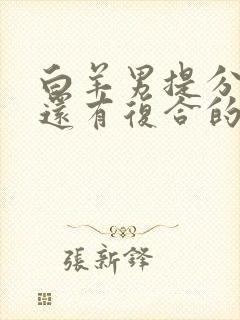 白羊男提分
還有復合的
張新鋒